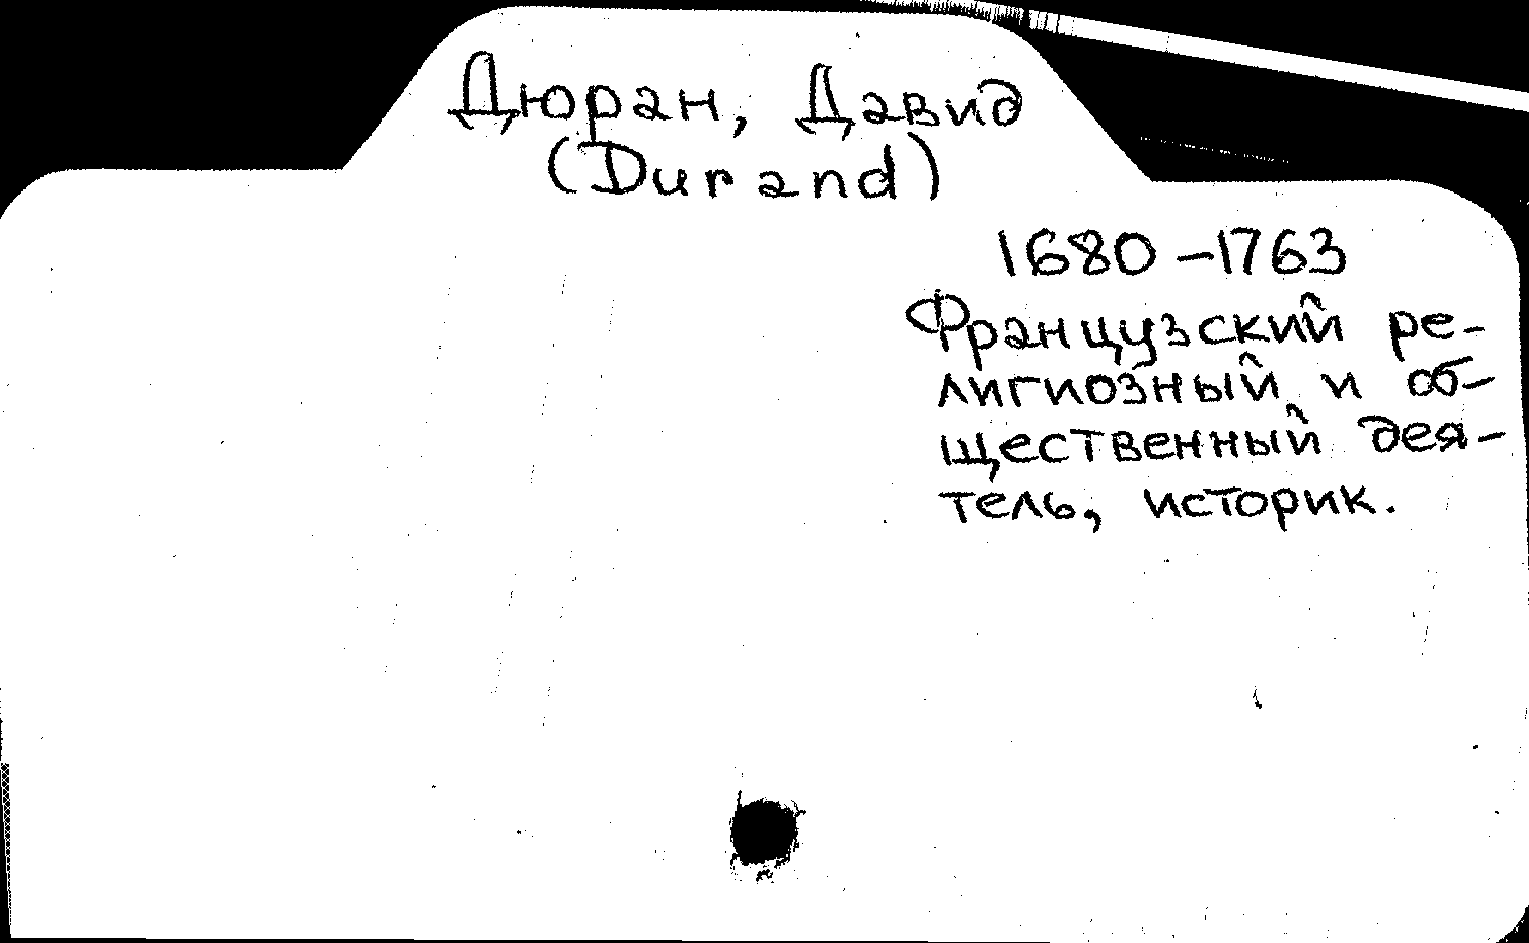 Дюран, Давид
(Durand)
1680-1763
Французский ре-
лигиозный и об-
щественный дея-
тель, историк.